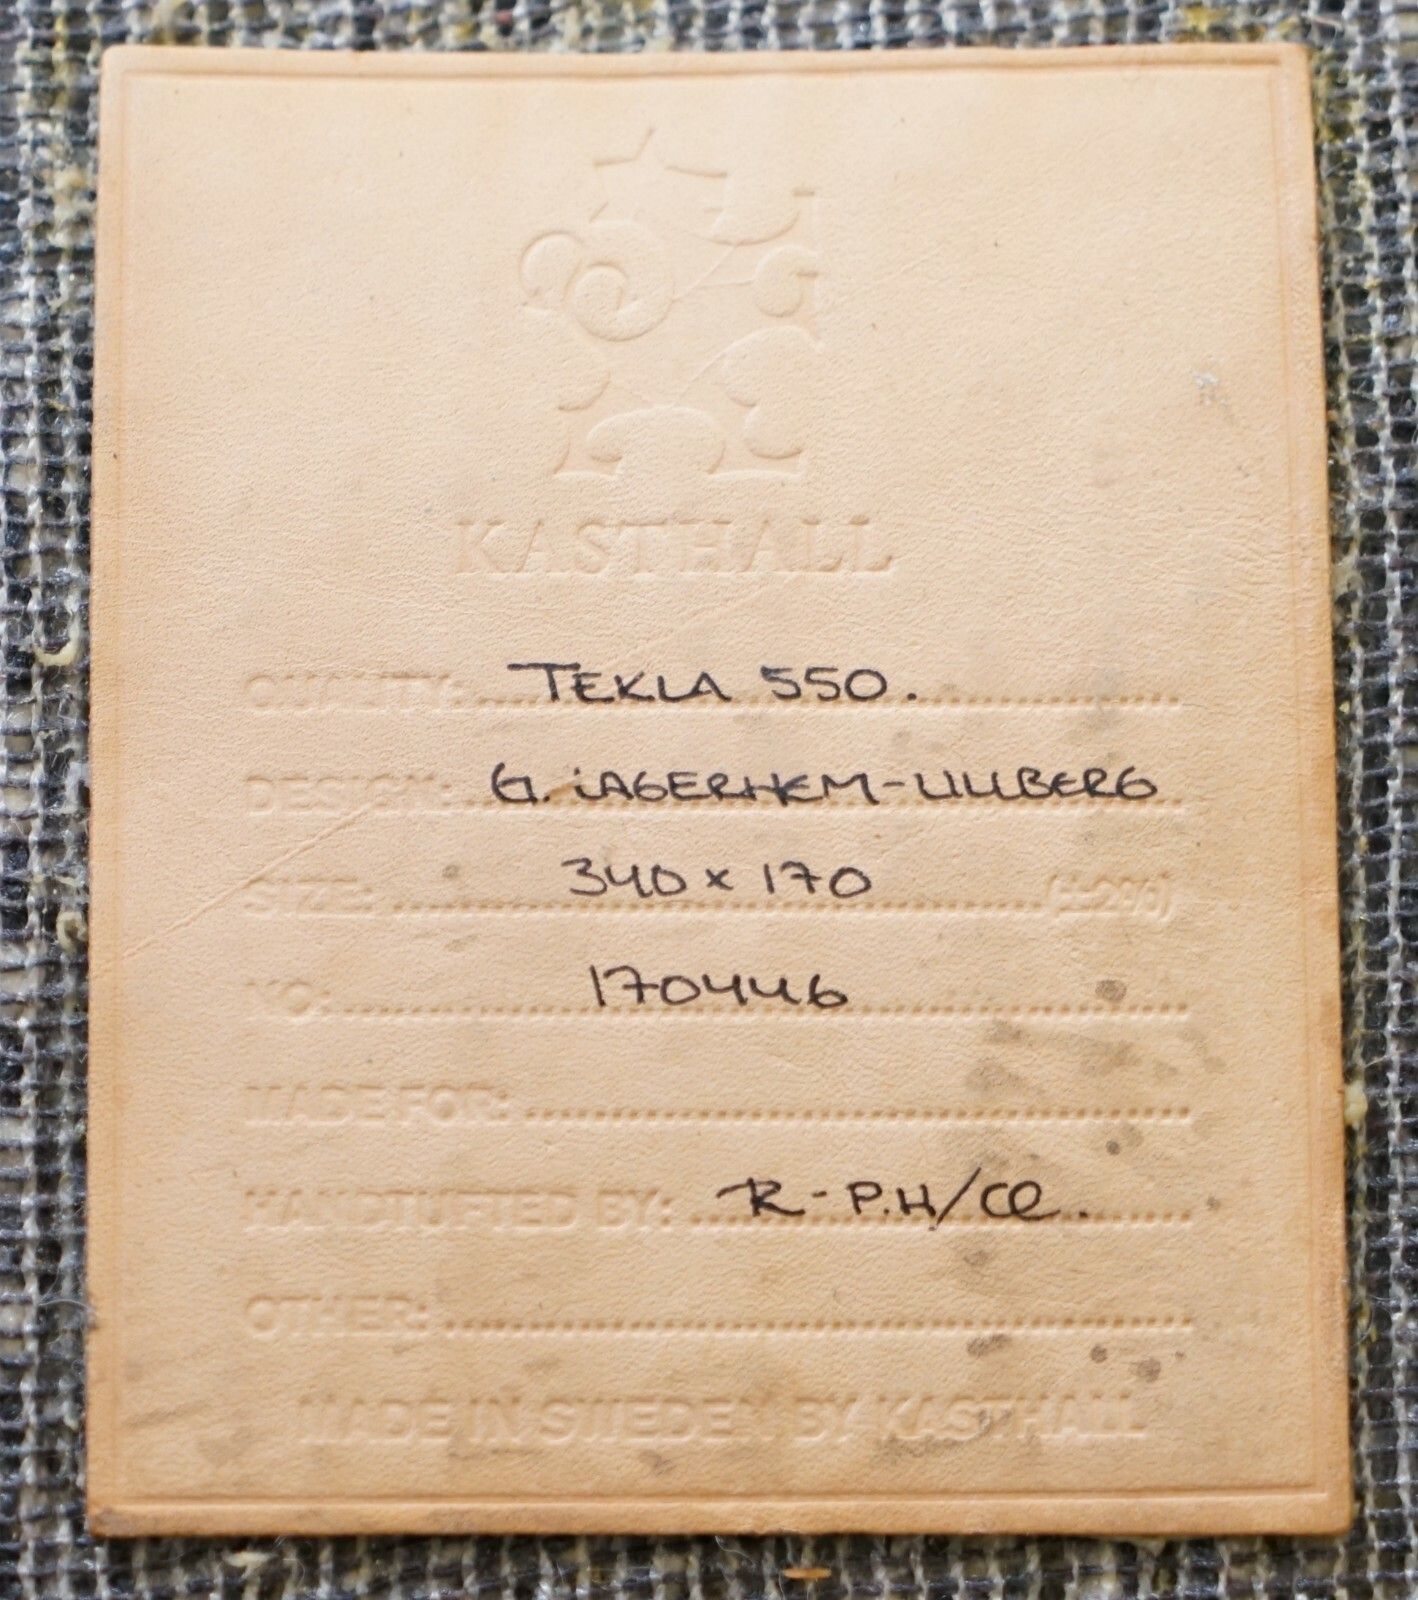 KASTHALL
QUALITY: TEKLA 550.
DESIGN: G. JAGERHEM-LILLBERG
SIZE: 340 x 170 (±2%)
NO: 170446
MADE FOR:
HANDTUFTED BY: R-P.H/CL.
OTHER:
MADE IN SWEDEN BY KASTHALL